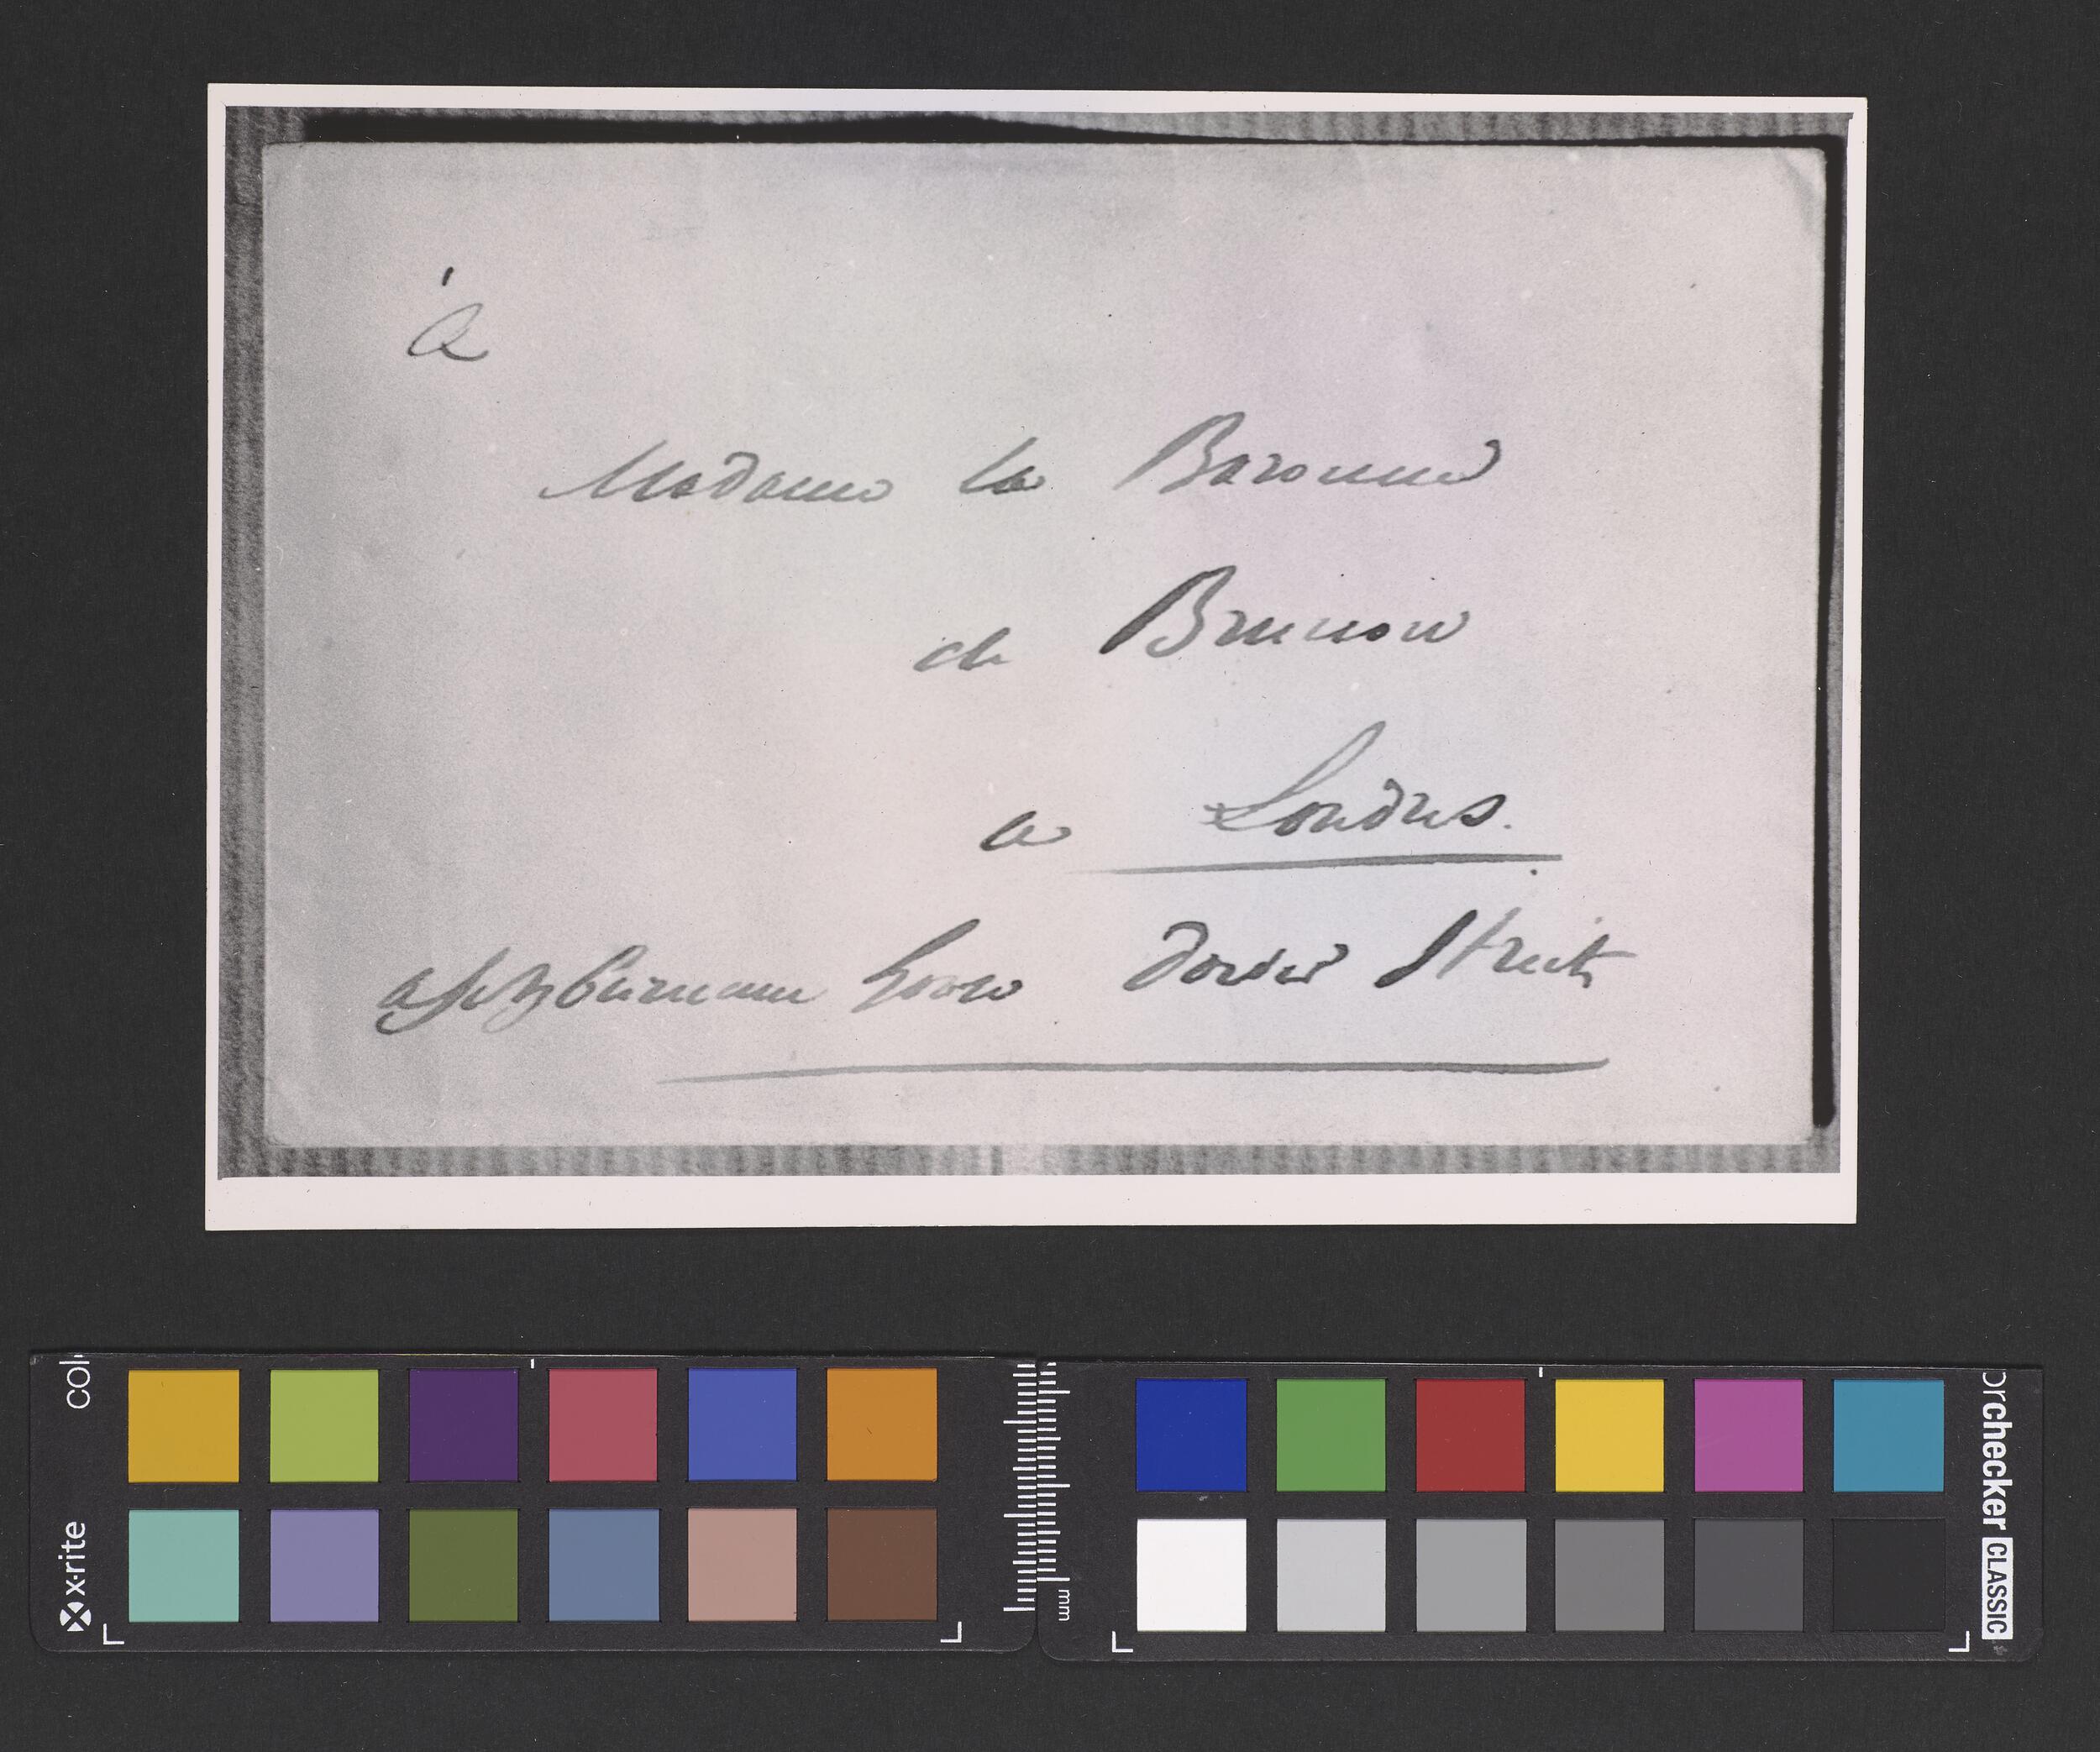 à
Madame la Baronne
de Brunow
a Londres.
Dover Street
colo
x·rite
mm
orchecker CLASSIC